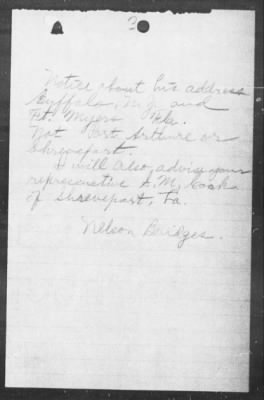 3
Notice about his address
Byffalo, N.Y. and
Ft. Myers Fla.
Not Port Arthure or
Shreveport.
I will also advise your
representive A. M. Cook
of Shreveport, La.
Nelson Bridges.